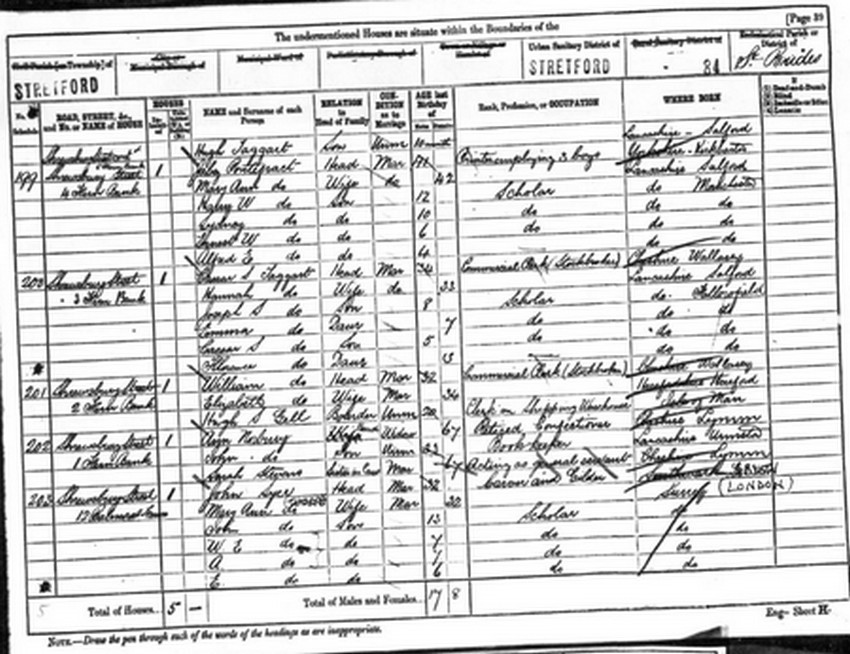 [Page 39
The undermentioned Houses are situate within the Boundaries of the
Civil Parish [or Township] of
City or Municipal Borough of
Municipal Ward of
Parliamentary Borough of
Town or Village or Hamlet of
Urban Sanitary District of
Rural Sanitary District of
Ecclesiastical Parish or District of
STRETFORD
STRETFORD
84
St. Brides
No. of Schedule
ROAD, STREET, &c., and No. or NAME of HOUSE
HOUSES
NAME and Surname of each Person
RELATION to Head of Family
CON-DITION as to Marriage
AGE last Birthday of
Rank, Profession, or OCCUPATION
WHERE BORN
Hugh Taggart Son Unm 10 months Lancashire - Salford
199 Shrewsbury Street 1 Pontefract Head Mar Printer employing 3 boys Yorkshire
4 Fern Bank Mary Ann do Wife do 42 Lancashire Salford
Harry W do Son 12 Scholar do Manchester
Sydney do do 10 do do do
Ernest W do do 6 do do do
Alfred E do do 4 do do
200 Shrewsbury Street 1 Caesar S Taggart Head Mar 34 Commercial Clerk (Stockbroker) Cheshire Wallasey
3 Fern Bank Hannah do Wife do 33 Lancashire Salford
Joseph S do Son 8 Scholar do Fallowfield
Emma do Daur 7 do do do
Caesar S do Son 5 do do do
Florence do Daur 3 do do
201 Shrewsbury Street 1 William do Head Mar 32 Commercial Clerk (Stockbroker) Cheshire Wallasey
2 Fern Bank Elizabeth do Wife Mar 34 Herefordshire Hereford
Hugh S Gell Boarder Unm 20 Clerk in Shipping Warehouse Isle of Man
202 Shrewsbury Street 1 Ann Norbury Widow 67 Retired Confectioner Cheshire Lymm
1 Fern Bank John do Son Unm 33 Bookkeeper Lancashire Urmston
Sarah Stevens Sister in Law Mar 67 Acting as general servant Cheshire Lymm
203 Shrewsbury Street 1 John Dyer Head Mar 32 Carver and Gilder Southwark
Mary Ann do Wife Mar 32 Surrey (LONDON)
John do Son 13 Scholar do
W. E do do 7 do do
A do do do do
E do do 6 do do
Total of Houses.. 5 –
Total of Males and Females.. 17 8
Eng— Sheet H.
NOTE.—Draw the pen through such of the words of the headings as are inappropriate.